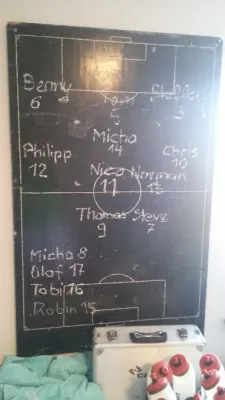 Benny
6
Tom
5
Steffen
3
Micha
14
Philipp
12
Chris
10
Nico
11
Norman
13
Thomas
9
Steve
7
Micha 8
Olaf 17
Tobi 16
Robin 15